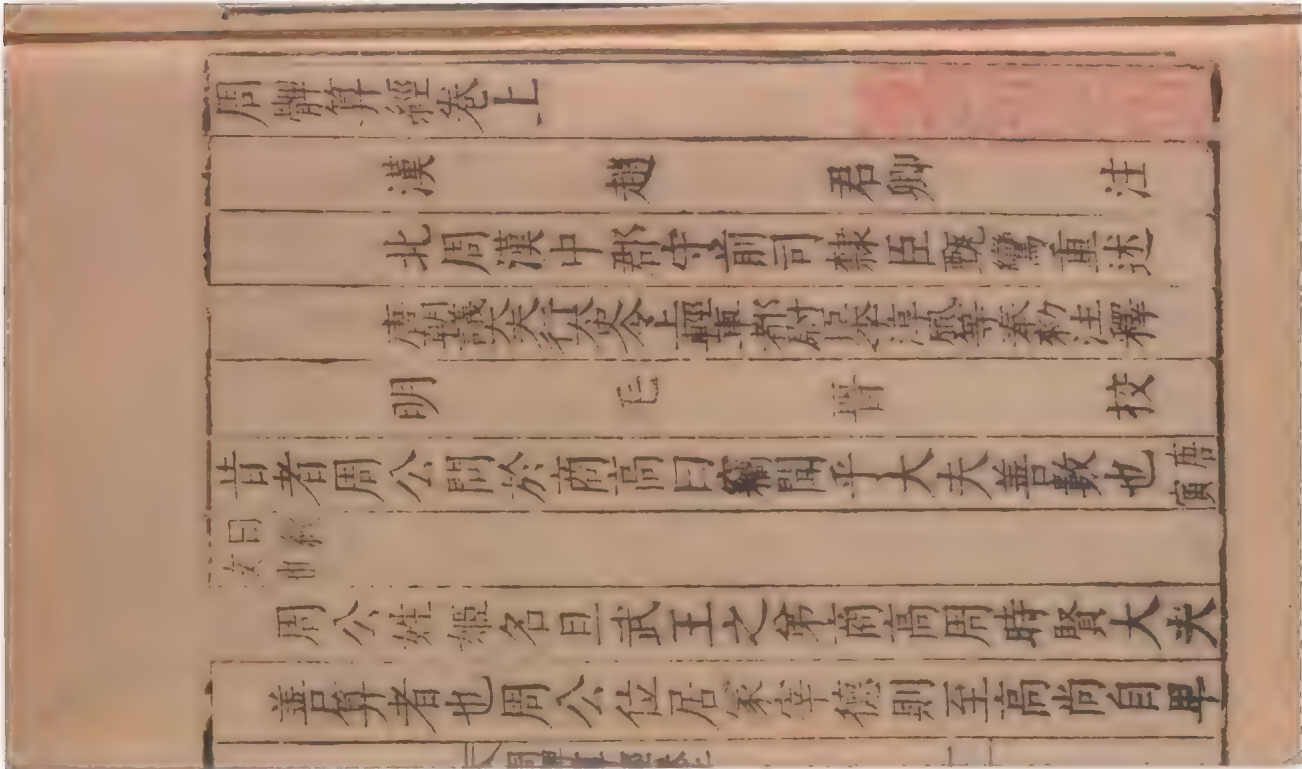 周髀算經卷上
漢 趙 君卿 注
北周漢中郡守前司隸臣甄鸞重述
唐朝議大夫行太史令上輕車都尉臣李淳風等奉勅注釋
明 毛 晉 校
昔者周公問於商高曰竊聞乎大夫善數也
周公姓姬名旦武王之弟商高周時賢大夫
善算者也周公位居冢宰德則至高尚自卑